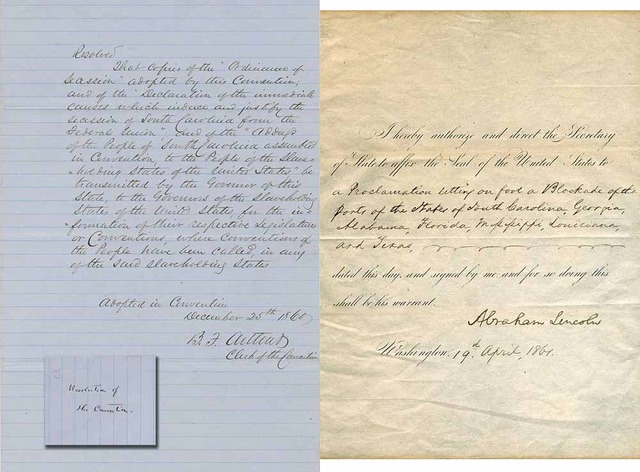 Resolved
That copies of the "Ordinance of
Secession" adopted by this Convention,
and of the "Declaration of the immediate
causes which induce and justify the
secession of South Carolina from the
Federal Union", and of the "Address
of the People of South Carolina assembled
in Convention, to the People of the Slave-
holding States of the United States" be
transmitted by the Governor of this
State, to the Governors of the Slaveholding
States of the United States, for the in-
formation of their respective Legislatures
or Conventions, where Conventions of
the People have been called, in any
of the said slaveholding States
Adopted in Convention
December 25th 1860
B. F. Arthur
Clerk of the Convention
Resolution of
the Convention.
I hereby authorize and direct the Secretary
of State to affix the Seal of the United States to
a Proclamation setting on foot a Blockade of the
Ports of the States of South Carolina, Georgia,
Alabama, Florida, Mississippi, Louisiana,
and Texas,
dated this day, and signed by me and for so doing this
shall be his warrant.
Abraham Lincoln
Washington, 19th April, 1861.